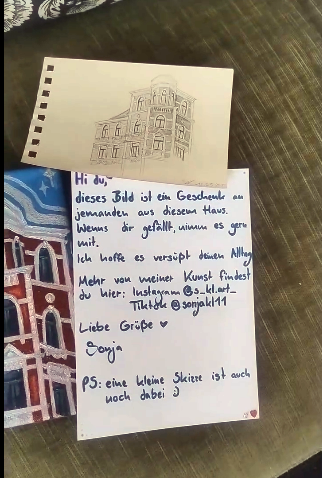 Hi du,
dieses Bild ist ein Geschenk an
jemanden aus diesem Haus.
Wenns dir gefällt, nimm es gern
mit.
Ich hoffe es versüßt deinen Alltag
Mehr von meiner Kunst findest
du hier: Instagram @s_kl.art_
Tiktok @sonjakl11
Liebe Grüße ♥
Sonja
PS: eine kleine Skizze ist auch
noch dabei :)